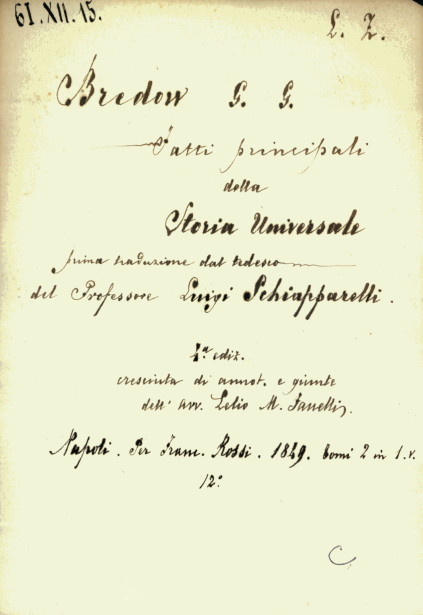 61.XII.15.
L. Z.
Bredow G. G.
Fatti principali
della
Storia Universale
prima traduzione dal tedesco
del Professore Luigi Schiapparelli.
4a ediz.
cresciuta di annot. e giunte
dell' Avv. Lelio M. Fanelli,
Napoli. Per Franc. Rossi. 1849. Tomi 2 in 1. v.
12°
C